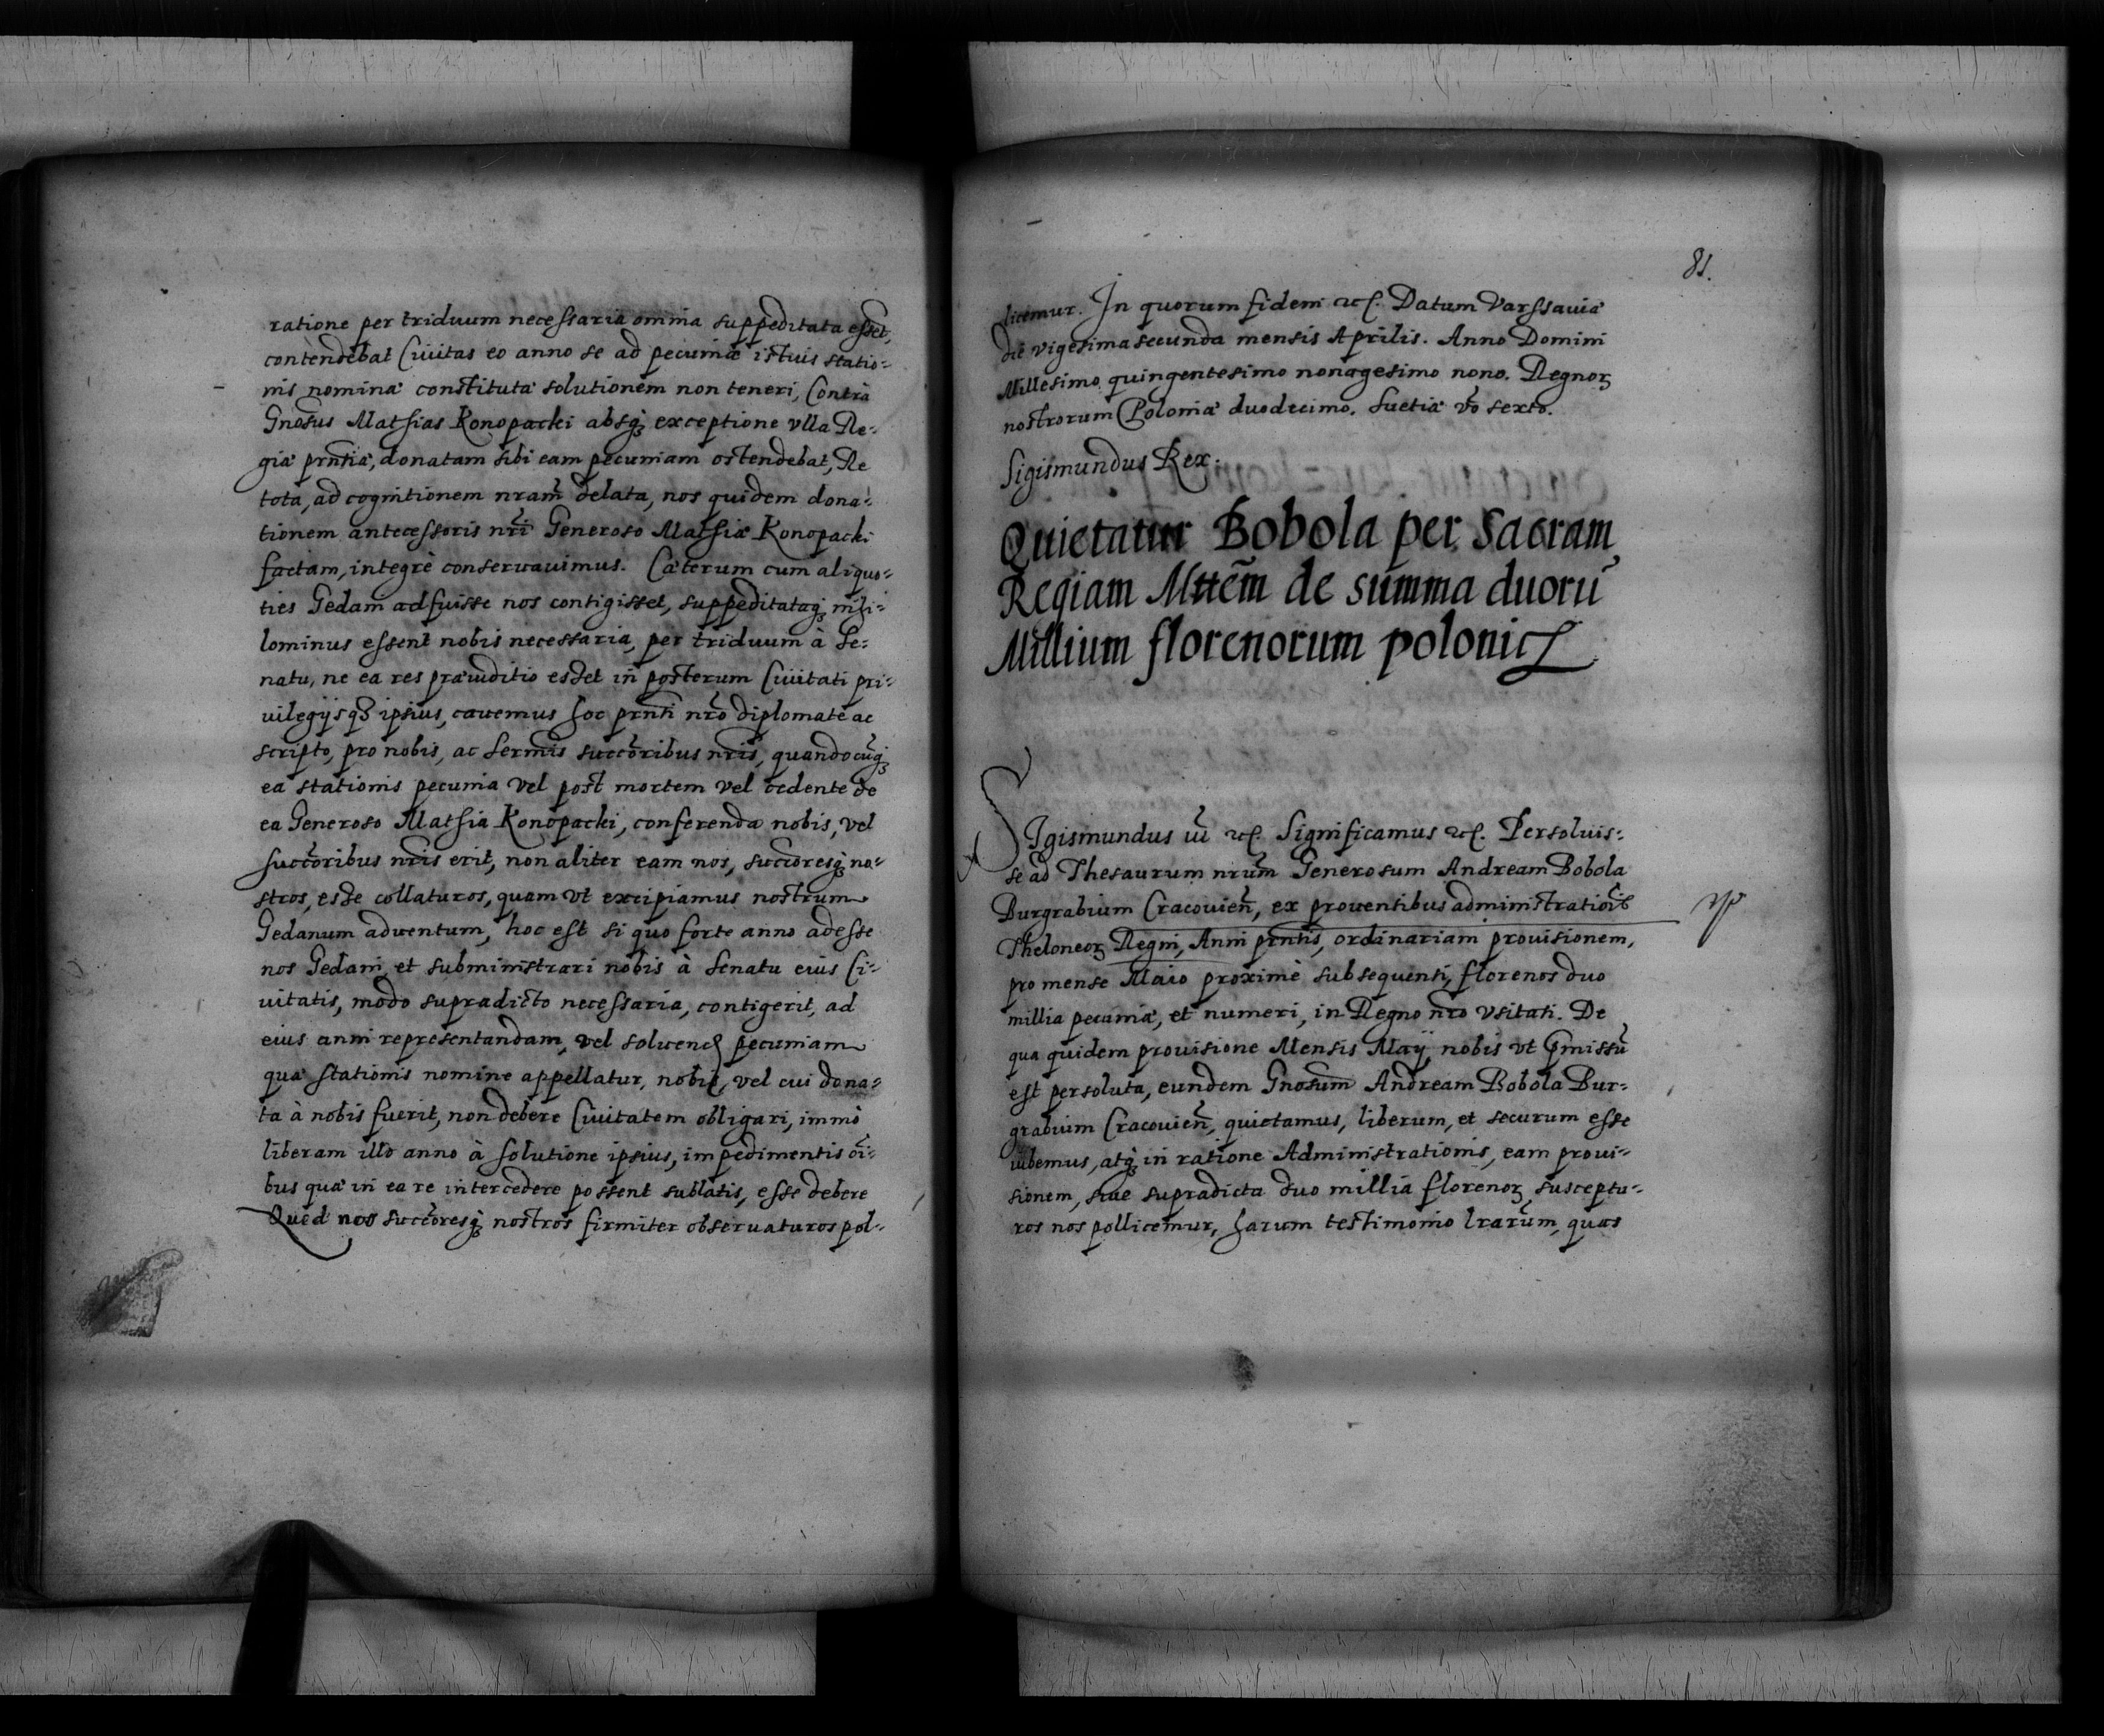 ratione per triduum necessaria omnia suppeditata esset,
contendebat Ciuitas eo anno se ad pecuniæ istuis statio:
nis nomina constituta solutionem non teneri, Contrà
Gnosus Mathias Konopacki absq; exceptione vlla Re:
giæ prntiæ, donatam sibi eam pecuniam ostendebat, Re
tota, ad cognitionem nram delata, nos quidem dona:
tionem antecessoris nri Generoso Mathiæ Konopacki
factam, integrè conseruauimus. Cæterum cum aliquo:
ties Gedani adfuisse nos contigisset, suppeditataq; nihi:
lominus essent nobis necessaria, per triduum à Se:
natu, ne ea res præiuditio esset in posterum Ciuitati pri:
uilegijsq; ipsius, cauemus hoc prnti nro diplomate ac
scripto, pro nobis, ac Sermis succoribus nris, quandocuq;
ea stationis pecunia vel post mortem vel cedente de
ea Generoso Mathia Konopacki, conferenda nobis, vel
succoribus nris erit, non aliter eam nos, succoresq; no:
stros, esse collaturos, quam vt excipiamus nostrum
Gedanum aduentum, hoc est si quo forte anno adesse
nos Gedani et subministrari nobis à Senatu eius Ci:
uitatis, modo supradicto necessaria, contigerit, ad
eius anni representandam, vel soluend pecuniam
quæ stationis nomine appellatur, nobis, vel cui dona:
ta à nobis fuerit, non debere Ciuitatem obligari, immò
liberam illo anno à solutione ipsius, impedimentis oi:
bus quæ in ea re intercedere possent sublatis, esse debere
Quod nos succoresq; nostros firmiter obseruaturos pol:
81.
licemur. In quorum fidem etc. Datum Varssauiæ
die vigesima secunda mensis Aprilis. Anno Domini
Millesimo quingentesimo nonagesimo nono. Regnoꝝ
nostrorum Poloniæ duodecimo. Suetiæ vo sexto.
Sigismundus Rex.
Quietatur Bobola per Sacram
Regiam Mttem de summa duoru
Millium florenorum polonic
SIgismundus iii etc. Significamus etc. Persoluis:
se ad Thesaurum nrum Generosum Andream Bobola
Burgrabium Cracouien, ex prouentibus administratiois
Theloneoꝝ Regni, Anni prntis, ordinariam prouisionem,
pro mense Maio proximè subsequenti, florenos duo
millia pecuniæ, et numeri, in Regno nro vsitati. De
qua quidem prouisione Mensis Maij nobis vt pmissu
est persoluta, eundem Gnosum Andream Bobola Bur:
grabium Cracouien, quietamus, liberum, et securum esse
iubemus, atq; in ratione Administrationis, eam proui:
sionem, siue supradicta duo millia florenoꝝ susceptu:
ros nos pollicemur, harum testimonio lrarum, quas